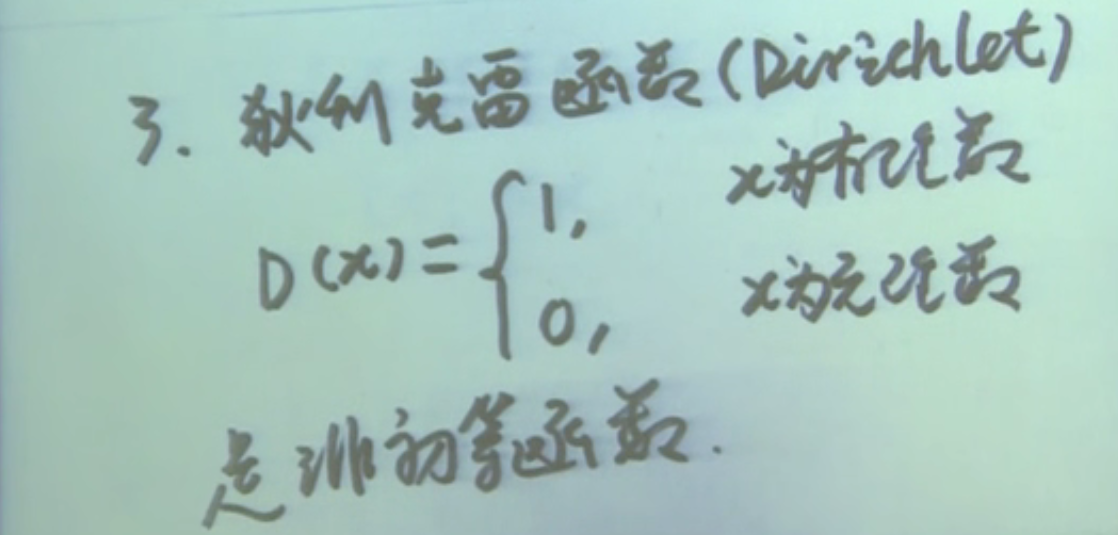 3. 狄利克雷函数(Dirichlet)
D(x) = { 1, x为有理数
0, x为无理数
是非初等函数.